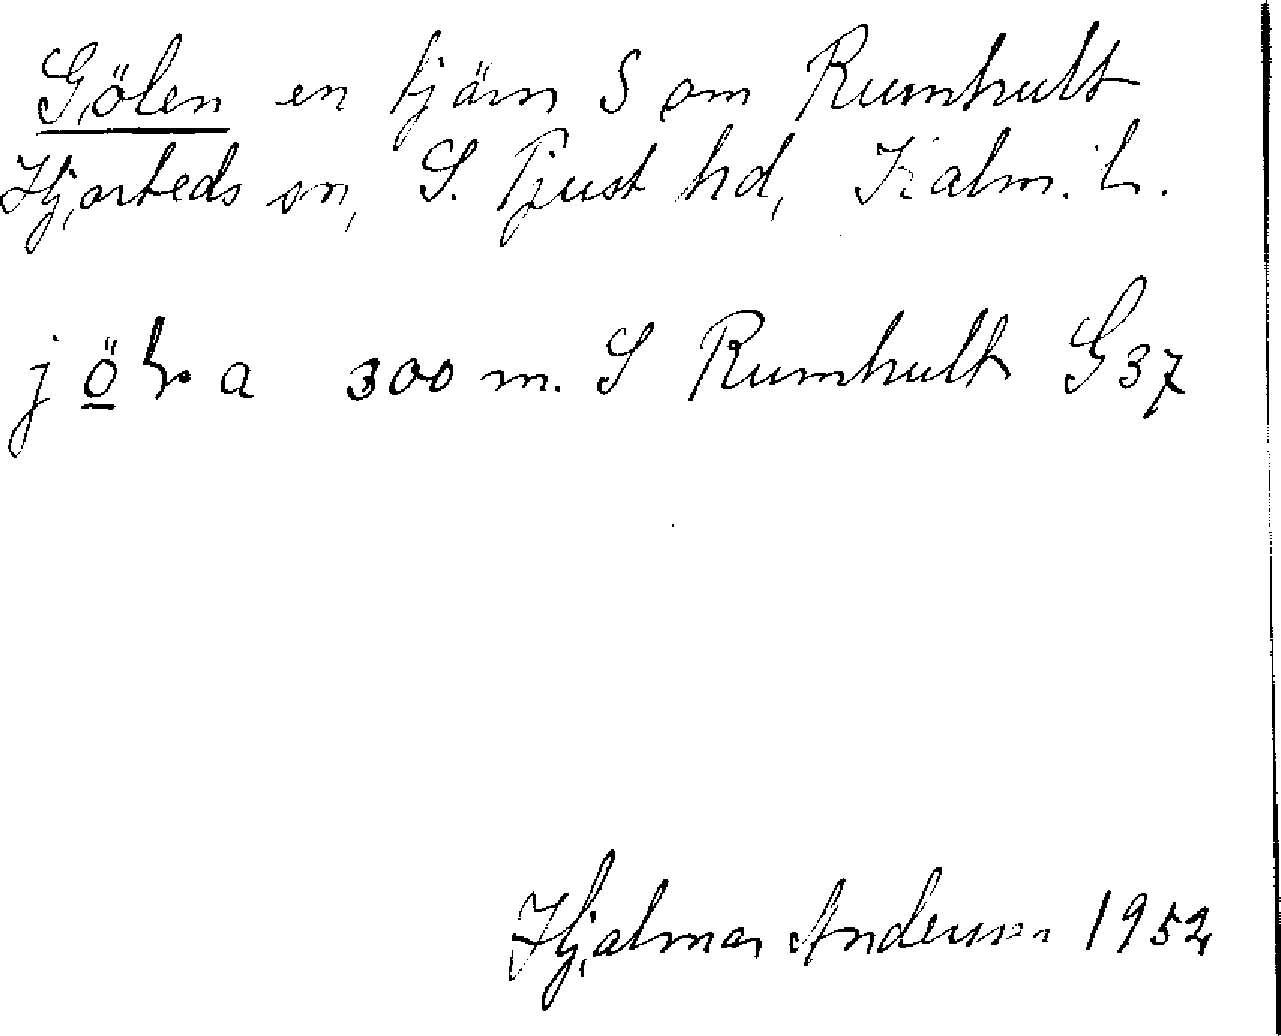 Gölen en tjärn S om Rumhult
Hjorteds sn, S. Tjust hd, Kalm. L.
jöla 300 m. S Rumhult G37
Hjalmar Anderson 1952